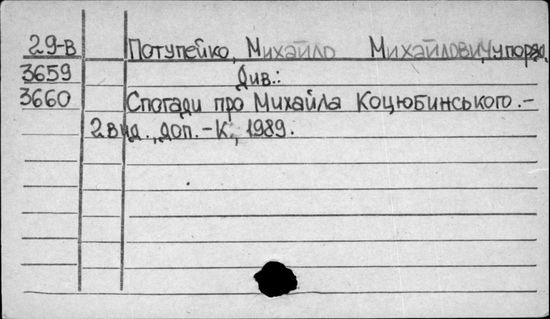 29-В Потупейко, Михайло Михайлович, упоряд.
3659 Див.:
3660 Спогади про Михайла Коцюбинського.-
2 вид., доп.-К., 1989.